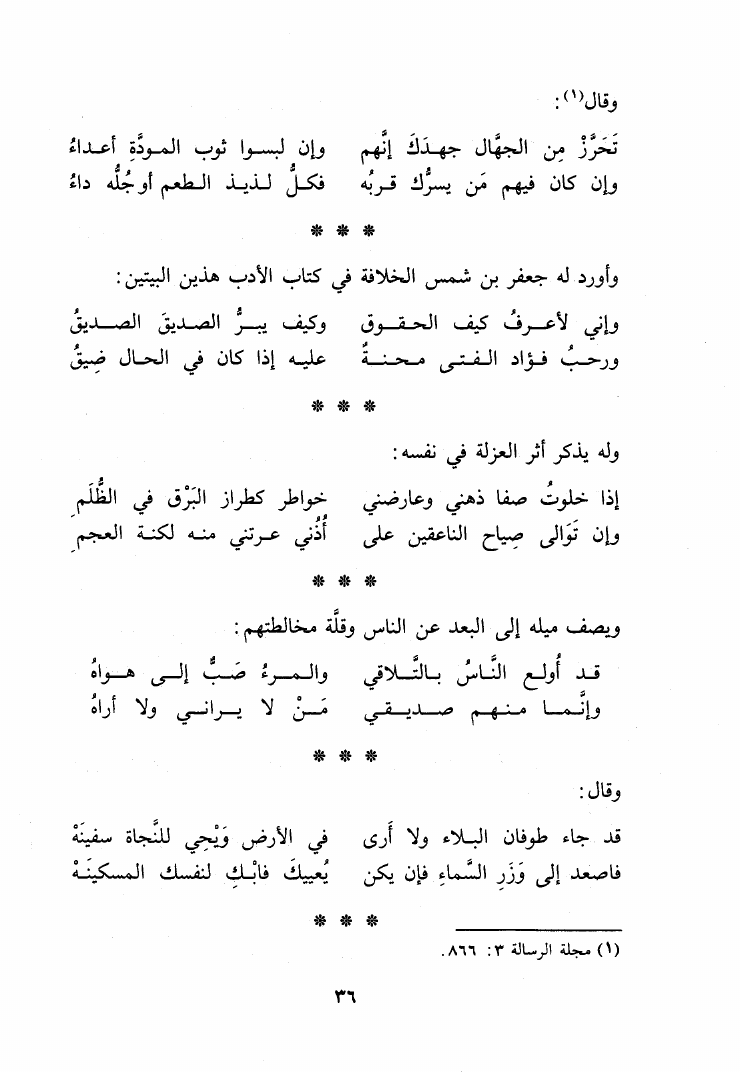 وقال(١):
تَحَرَّزْ مِن الجهَّال جهـدَكَ إنَّهم    وإن لبسـوا ثوب المـودَّةِ أعـداءُ
وإن كان فيهم مَن يسرُّك قـربُه    فكـلُّ لـذيـذ الـطعم أو جُلُّه داءُ
* * *
وأورد له جعفر بن شمس الخلافة في كتاب الأدب هذين البيتين:
وإني لأعـرفُ كيف الحـقـوق    وكيف يبـرُّ الصديقَ الصـديقُ
ورحبُ فـؤاد الـفـتـى محـنـةٌ    عليـه إذا كان في الحـال ضِيقُ
* * *
وله يذكر أثر العزلة في نفسه:
إذا خلوتُ صفا ذهني وعارضني    خواطر كطراز البَرْق في الظُّلَمِ
وإن تَوَالى صِياح الناعقين على    أُذُني عـرتني منـه لكنـة العجمِ
* * *
ويصف ميله إلى البعد عن الناس وقلَّة مخالطتهم:
قـد أُولـع النَّاسُ بـالتَّـلاقي    والـمـرءُ صَبٌّ إلـى هـواهُ
وإنَّمـا منـهم صـديـقـي    مَـنْ لا يـرانـي ولا أراهُ
* * *
وقال:
قد جاء طوفان البـلاء ولا أَرى    في الأرض وَيْحِي للنَّجاة سفينَهْ
فاصعد إلى وَزَرِ السَّماءِ فإن يكن    يُعييكَ فابْـكِ لنفسك المسكينَـهْ
* * *
(١) مجلة الرسالة ٣: ٨٦٦.
٣٦